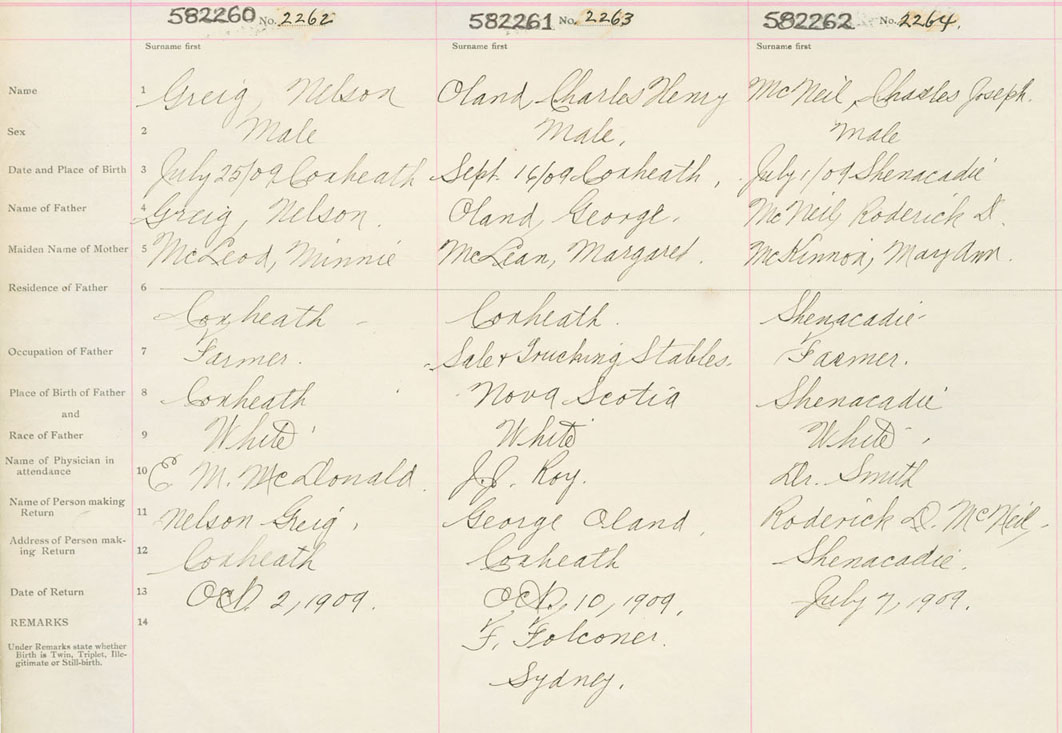 582260 No. 2262 582261 No. 2263 582262 No. 2264.
Surname first Surname first Surname first
Name 1 Greig, Nelson Oland, Charles Henry McNeil, Charles Joseph.
Sex 2 Male Male, Male
Date and Place of Birth 3 July 25/09 Coxheath Sept. 16/09 Coxheath, July 1/09 Shenacadie
Name of Father 4 Greig, Nelson. Oland, George. McNeil, Roderick D.
Maiden Name of Mother 5 McLeod, Minnie McLean, Margaret. McKinnon, Mary Ann.
Residence of Father 6
Coxheath - Coxheath. Shenacadie-
Occupation of Father 7 Farmer. Sale & Trucking Stables. Farmer.
Place of Birth of Father 8 Coxheath Nova Scotia Shenacadie
and
Race of Father 9 White White White
Name of Physician in
attendance 10 E M. McDonald. J.J. Roy. Dr. Smith
Name of Person making
Return 11 Nelson Greig. George Oland, Roderick D. McNeil,
Address of Person mak-
ing Return 12 Coxheath Coxheath Shenacadie.
Date of Return 13 Oct. 2, 1909. Oct. 10, 1909. July 7, 1909.
REMARKS 14 F. Folconer.
Under Remarks state whether
Birth is Twin, Triplet, Ille-
gitimate or Still-birth.
Sydney.